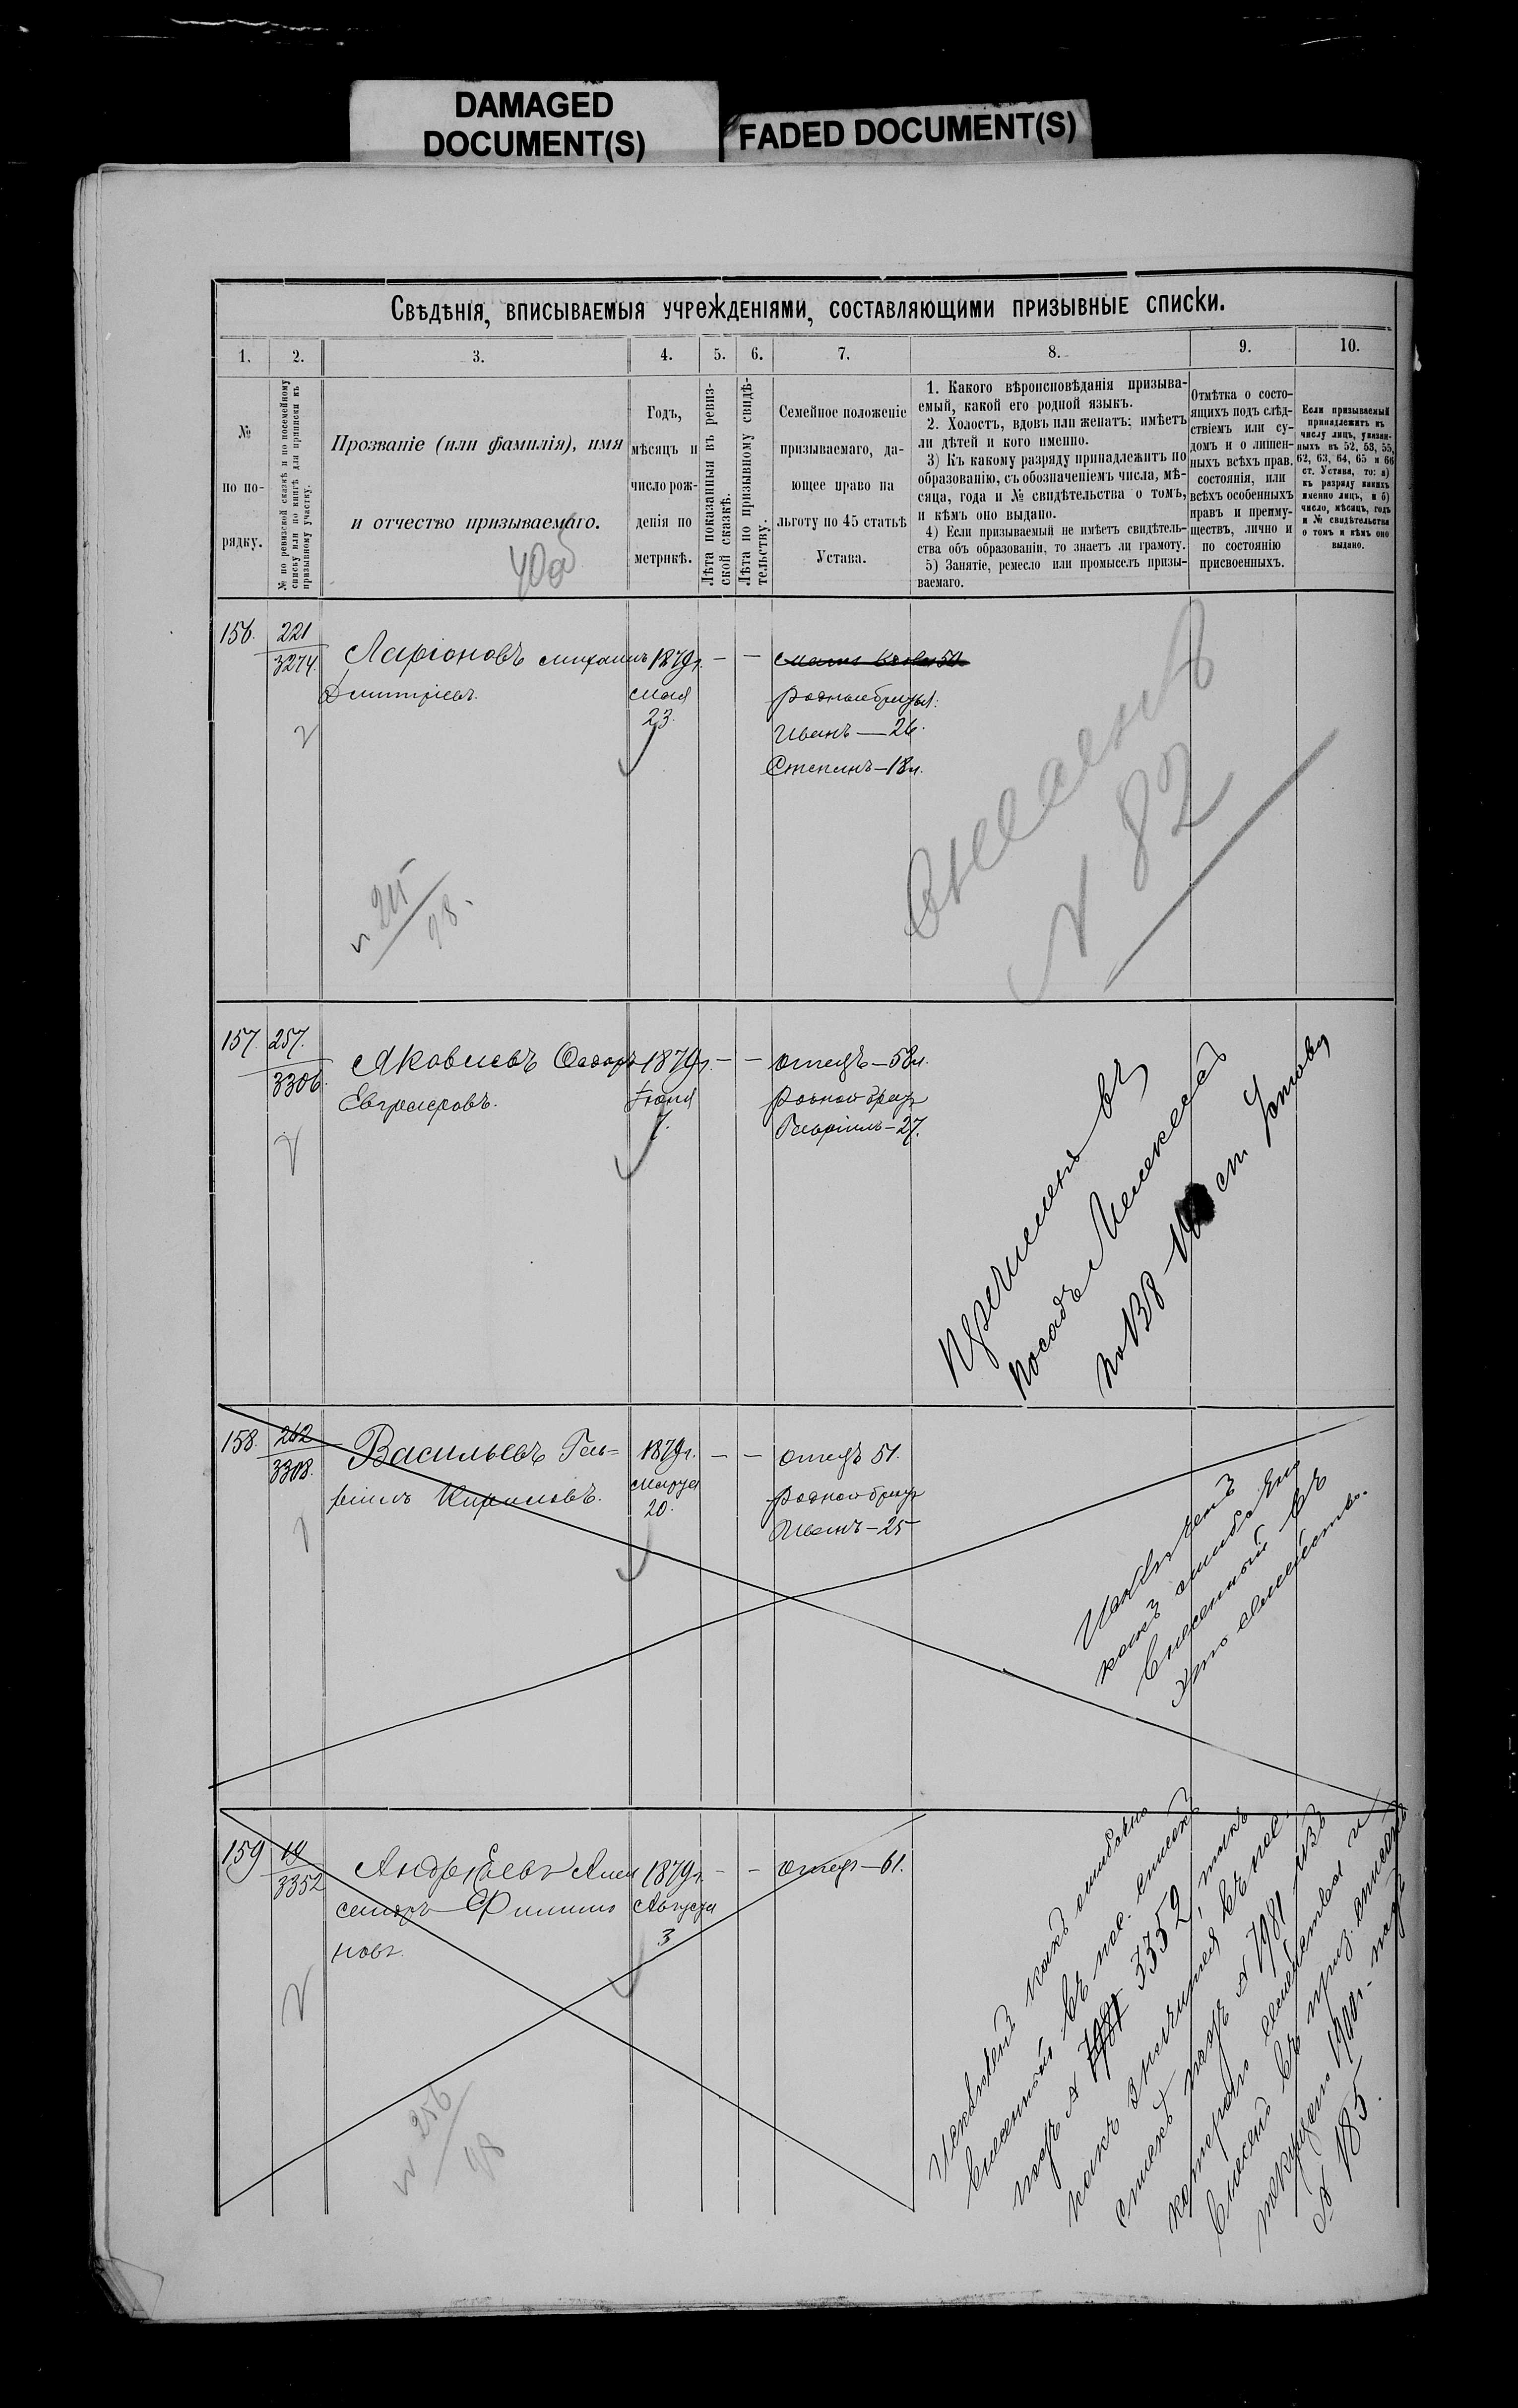 DAMAGED
DOCUMENT(S)
FADED DOCUMENT(S)
Свѣдѣнія, вписываемыя учрежденіями, составляющими призывные списки.
1. 2. 3. 4. 5. 6. 7. 8. 9. 10.
№
по по-
рядку.
№ по ревизской сказкѣ и по посемейному
списку или по книгѣ для приписки къ
призывному участку.
Прозваніе (или фамилія), имя
и отчество призываемаго.
Годъ,
мѣсяцъ и
число рож-
денія по
метрикѣ.
Лѣта показанныя въ ревиз-
ской сказкѣ.
Лѣта по призывному свидѣ-
тельству.
Семейное положеніе
призываемаго, да-
ющее право на
льготу по 45 статьѣ
Устава.
1. Какого вѣроисповѣданія призыва-
емый, какой его родной языкъ.
2. Холостъ, вдовъ или женатъ; имѣетъ
ли дѣтей и кого именно.
3) Къ какому разряду принадлежитъ по
образованію, съ обозначеніемъ числа, мѣ-
сяца, года и № свидѣтельства о томъ,
и кѣмъ оно выдано.
4) Если призываемый не имѣетъ свидѣтель-
ства объ образованіи, то знаетъ ли грамоту.
5) Занятіе, ремесло или промыселъ призы-
ваемаго.
Отмѣтка о состо-
ящихъ подъ слѣд-
ствіемъ или су-
домъ и о лишен-
ныхъ всѣхъ прав.
состоянія, или
всѣхъ особенныхъ
правъ и преиму-
ществъ, лично и
по состоянію
присвоенныхъ.
Если призываемый
принадлежитъ къ
числу лицъ, указан-
ныхъ въ 52, 53, 55,
62, 63, 64, 65 и 66
ст. Устава, то: а)
къ разряду какихъ
именно лицъ, и б)
число, мѣсяцъ, годъ
и № свидѣтельства
о томъ и кѣмъ оно
выдано.
156. 221
3274.
Ларіоновъ Михаилъ
Дмитріевъ.
1879г.
Мая
23.
— —
родные братья:
Иванъ — 26.
Степанъ — 18л.
Внесенъ
№ 82
№ 215
98.
157. 257.
3306.
Яковлевъ Ѳедоръ
Евграфовъ.
1879г.
Іюня
7.
— —
отецъ — 58л.
родной братъ
Гавріилъ — 27.
Перечисленъ въ
посадъ Мелекессъ
по 138 ст. Устава
158. 262
3308.
Васильевъ Гав-
ріилъ Кириловъ.
1879г.
Марта
20.
— —
отецъ 51.
родной братъ
Иванъ — 25
Исключенъ
какъ ошибочно
внесенный въ
это семейство.
159 19
3352
Андреевъ Алек
сандръ Филиппо
новъ.
1879г.
Августа
3
— —
отецъ — 61.
Исключенъ какъ ошибочно
внесенный въ пос. списокъ
подъ № 7981 3352, такъ
какъ значится въ пос.
спискѣ подъ № 7981 изъ
котораго семейства и
внесенъ въ приз. списокъ
текущаго 1900г. подъ
№ 185.
№ 256
98